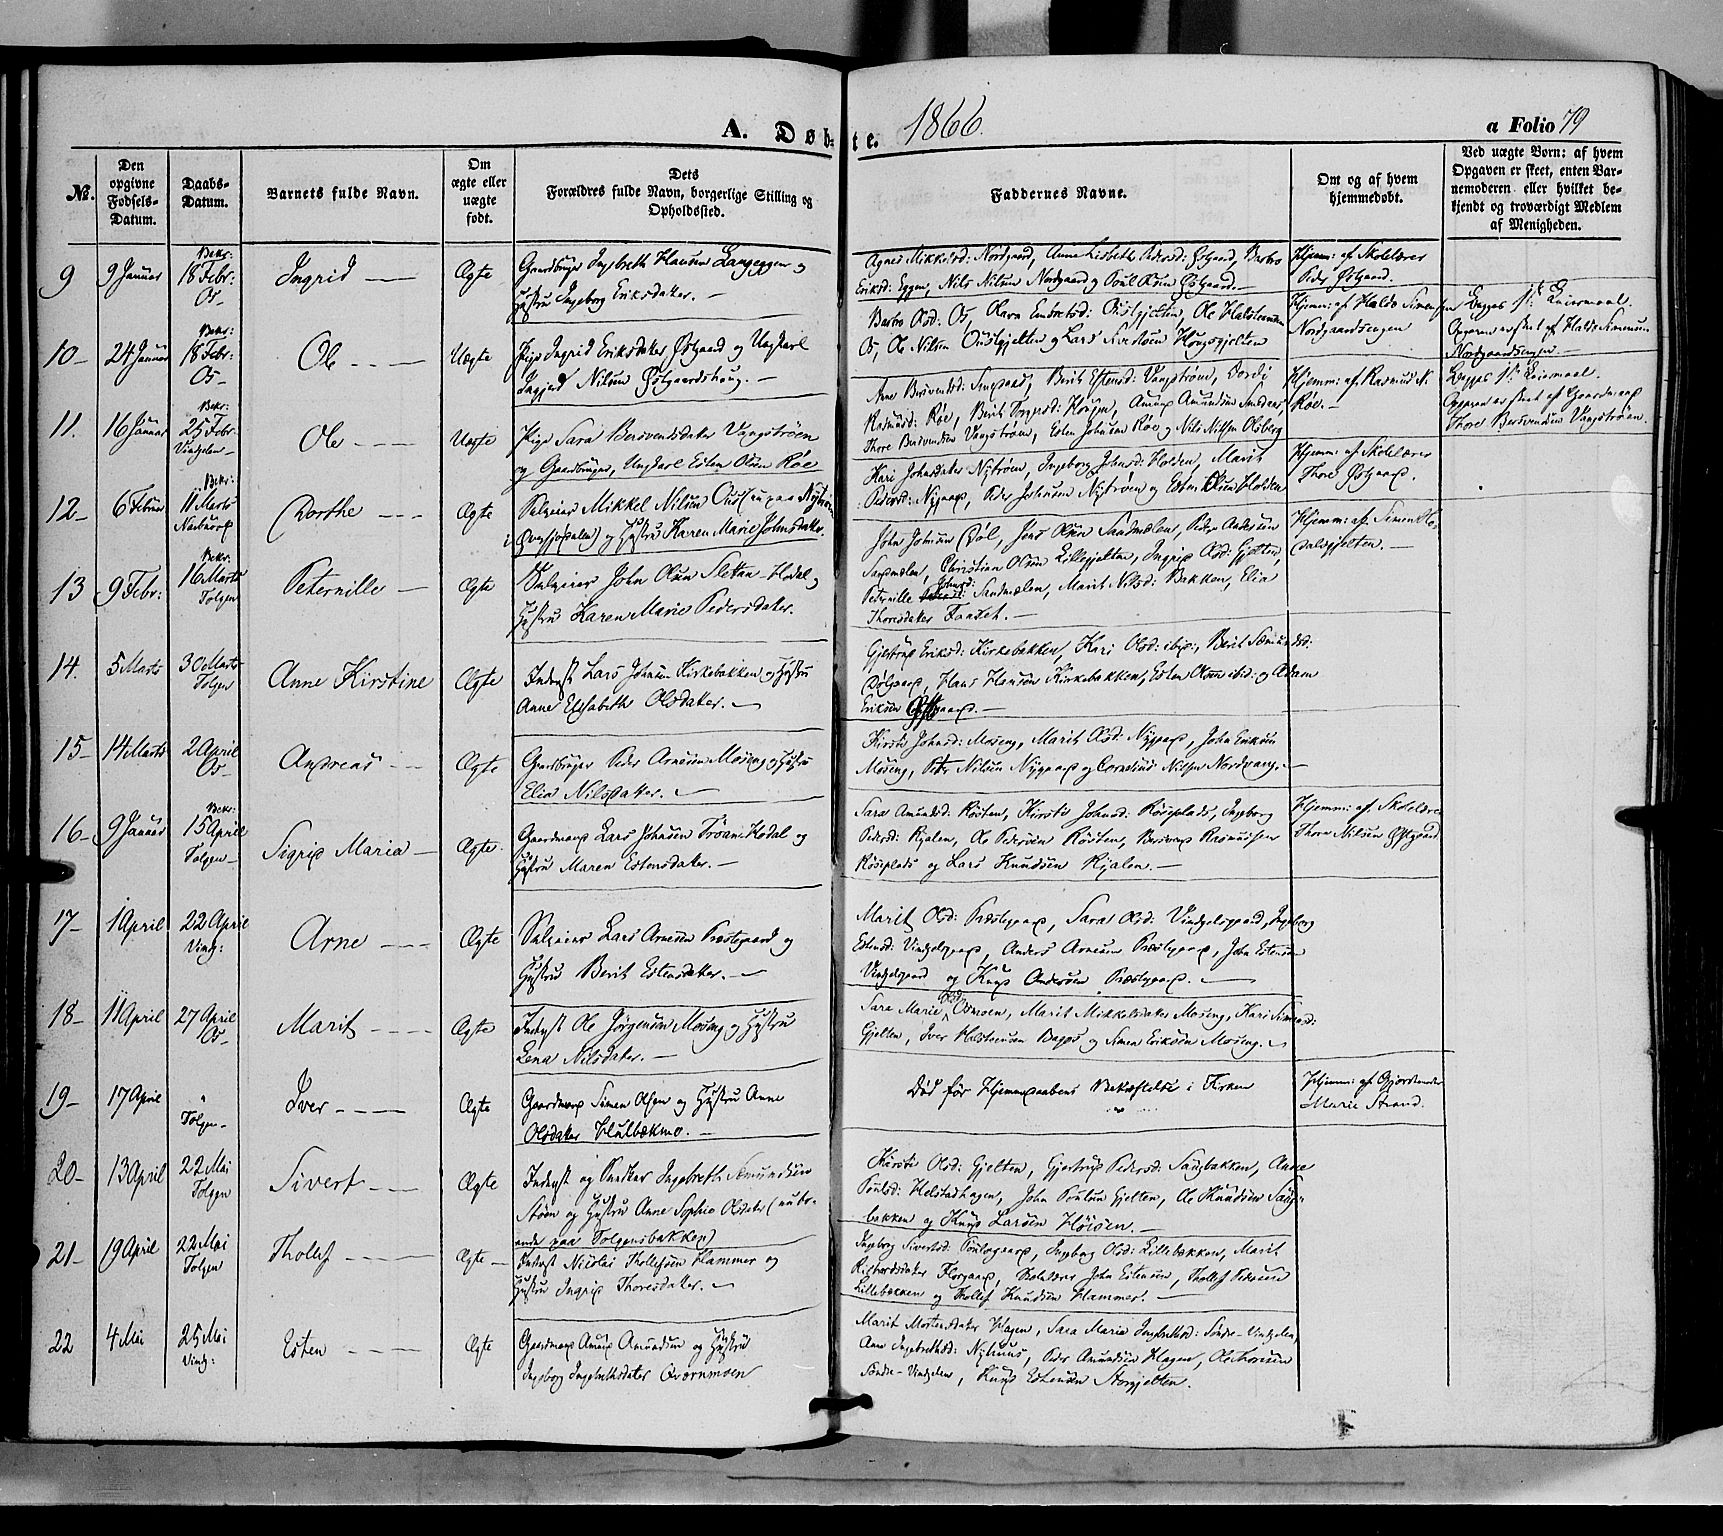 A. Døbte. 1866.
a Folio 79
No.
Den opgivne Fødsels-Datum.
Daabs-Datum.
Barnets fulde Navn.
Om ægte eller uægte født.
Dets Forældres fulde Navn, borgerlige Stilling og Opholdssted.
Faddernes Navne.
Om og af hvem hjemmedøbt.
Ved uægte Børn: af hvem Opgaven er skeet, enten Barnemoderen eller hvilket bekjendt og troværdigt Medlem af Menigheden.
9 9 Januar Bekr: 18 Febr: Os- Ingrid Ægte
Gaardbruger Ingebreth Hansen Langeggen og
Hustru Ingeborg Eriksdater.
Agnes Mikkelsd: Nordgaard, Anne Lisbeth Pedersd: Østgaard, Barbro
Eriksd: Eggen, Nils Nilsen Nordgaard og Poul Olsen Østgaard.
Hjem: af Skolelærer
Peder Østgaard.
10 24 Januar Bekr: 18 Febr: Os- Ole Uægte
Pige Ingrid Eriksdater Østgaard og Ungkarl
Nilsen Østgaardshaug.
Barbro Olsd: Os, Embretsd: Ousgjelten, Ole Halstensen
Os, Ole Nilsen Ousgjelten og Lars Hougsgjelten
Hjemm: af Haldo Simensen
Nordgaardsengen
Begges 1ste Leiermaal.
Opgaven er skeet af Haldo Simensen
Nordgaardsengen.
11. 16 Januar Bekr: 25 Febr: Vingelen Ole Uægte
Pige Sara Bersvendsdater Vangstrøen
og Gaardbruger, Ungkarl Esten Olsen Røe
Ane Bersvendsd: Berit Estensd: Vangstrøen, Dordi
Rasmusd: Røe, Berit Amund Amundsen
Thore Bersvendsen Vangstrøen, Esten Johnsen Røe og Nils Nilsen Olsberg
Hjemm: af Rasmus N.
Røe.
Begges 1ste Leiermaal.
Opgaven er skeet af Gaardmand
Thore Bersvendsen Vangstrøen.
12 6 Februar Bekr: 11 Marts Dorthe Ægte
Selveier Mikkel Nilsen paa
og Hustru Karen Marie Johnsdater.
Kari Johnsdater Nystrøen, Ingeborg Johnsd: Holden, Marit
Pedersd: Nygaard, Peder Johnsen Nystrøen og Esten Olsen Holden
Hjemm: af Skolelærer
Thore Østgaard.
13 9 Febr: Bekr: 16 Marts Tolgen Peternille Ægte
Selveier John Olsen Sletten Hodal og
Hustru Karen Marie Pedersdater.
John Johnsen Døl, Jens Olsen Sandmælen, Peder Andersen
Sandmælen, Christian Olsen Lillegjelten, Ingrid Olsd: Gjelten,
Peternille Johnsd: Sandmælen, Marit Nilsd: Bakken, Elia
Thoresdater Faaset.
Hjemm: af Simen
14. 5 Marts 30 Marts Tolgen Anne Kirstine Ægte
Inderst Lars Johnsen Kirkebakken og Hustru
Anne Elisabeth Olsdater.
Gjertrud Eriksd: Kirkebakken, Kari Olsd: ibid:, Berit Sæmundsd:
Hans Hansen Kirkebakken, Esten Olsen ibid: og Adam
Eriksen
15 14 Marts 2 April Os- Andreas Ægte
Gaardbruger Peder Arnesen Moseng og Hustru
Elia Nilsdater.
Kirsti Johnsd: Moseng, Marit Olsd: Nygaard, John Eriksen
Moseng, Peter Nilsen Nygaard og Cornelius Nilsen Nordvang.
16 9 Januar Bekr: 15 April Tolgen Sigrid Maria Ægte
Gaardmand Lars Johnsen Troan Hodal og
Hustru Maren Estensdater.
Sara Amundsd: Røsten, Kirsti Johnsd: Røseplads, Ingeborg
Pedersd: Kjalen, Ole Pedersen Røsten, Bersvend Rasmussen
Røseplads og Lars Knudsen Kjalen.
Hjemm: af Skolelærer
Thore Nilsen Østgaard
17 1 April 22 April Ving: Arne Ægte
Selveier Lars Arnesen Præstegaard og
Hustru Berit Estensdater.
Marit Olsd: Præstegaard, Sara Olsd: Vingelsgaard, Ingeborg
Estensd: Vingelsgaard, Anders Arnesen Præstegaard, John Estensen
Vingelsgaard og Knud Andersen Præstegaard.
18 11 April 27 April Os- Marit Ægte
Inderst Ole Jørgensen Moseng og Hustru
Lena Nilsdater.
Sara Marie Olsd: Osmoen, Marit Mikkelsdater Moseng, Kari Simensd:
Gjelten, Iver Halstensen Bagos og Simen Eriksen Moseng.
19 17 April " Tolgen Iver Ægte
Gaardmand Simen Olsen og Hustru Anne
Olsdater Hulbækmo.
Død før Hjemmedaabens Bekræftelse i Kirken
Hjemm: af Gjordemoder
Marie Strand.
20 13 April 22 Mai Tolgen Sivert Ægte
Inderst og Snedker Ingebreth Simundsen
Støen og Hustru Anne Sophie Olsdater (nubo-
ende paa Tolgensbakken)
Kirsti Olsd: Gjelten, Gjertrud Pedersd: Saugbakken, Anne
Poulsd: Helstadhagen, John Poulsen Gjelten, Ole Knudsen Saug-
bakken og Knud Larsen Høisen.
21 19 April 22 Mai Tolgen Tholef Ægte
Inderst Nicolai Thollefsen Hammer og
Hustru Ingrid Thoresdater.
Ingeborg Sivertsd: Ingeborg Olsd: Lillebakken, Marit
Richardsdater Skolelærer John Estensen, Thollef Pedersen
Lillebakken og Thollef Knudsen Hammer.
22 4 Mai 25 Mai Ving: Esten Ægte
Gaardmand Amund Amundsen og Hustru
Ingeborg Ingebrethsdater Qværnmoen
Marit Mortensdater Hagen, Sara Maria Ingebrethsd: Søndre-Vingelen,
Ane Ingebrethsd: Nyhuus, Peder Amundsen Hagen, Ole Thoresen
Søndre-Vingelen, Knud Estensen Storgjelten.